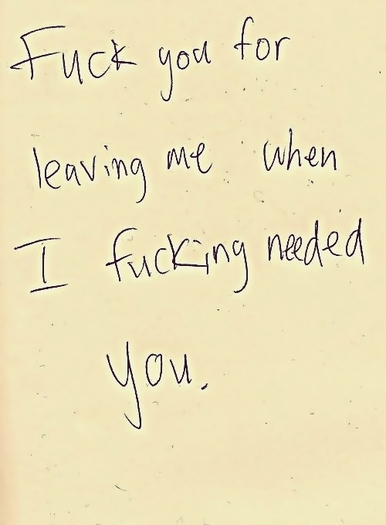 Fuck you for
leaving me when
I fucking needed
you.